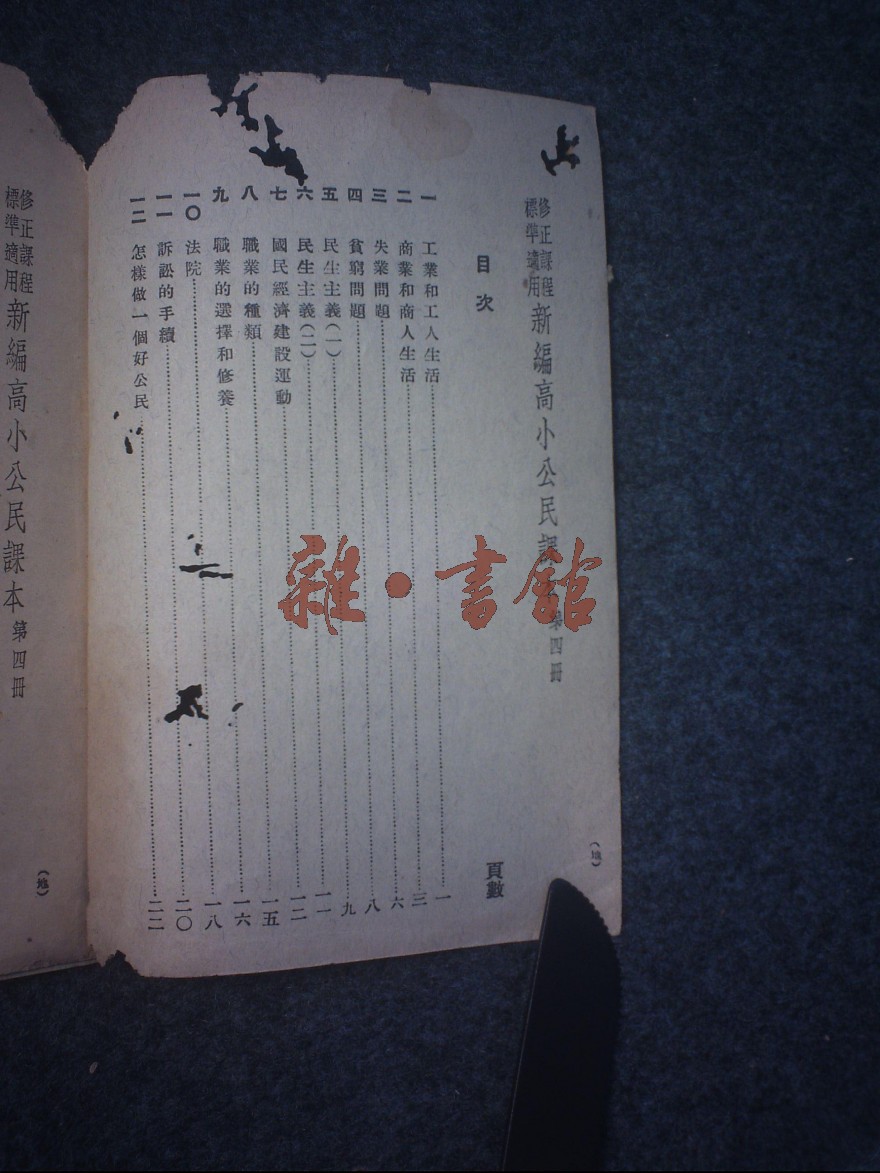 修正課程
標準適用 新編高小公民課 第四冊
(地)
目次 頁數
一 工業和工人生活 一
二 商業和商人生活 三
三 失業問題 六
四 貧窮問題 八
五 民生主義(一) 九
六 民生主義(二) 一一
七 國民經濟建設運動 一二
八 職業的種類 一五
九 職業的選擇和修養 一六
一〇 法院 一八
一一 訴訟的手續 二〇
一二 怎樣做一個好公民 二二
修正課程
標準適用 新編高小公民課本 第四冊
(地)
雜·書館